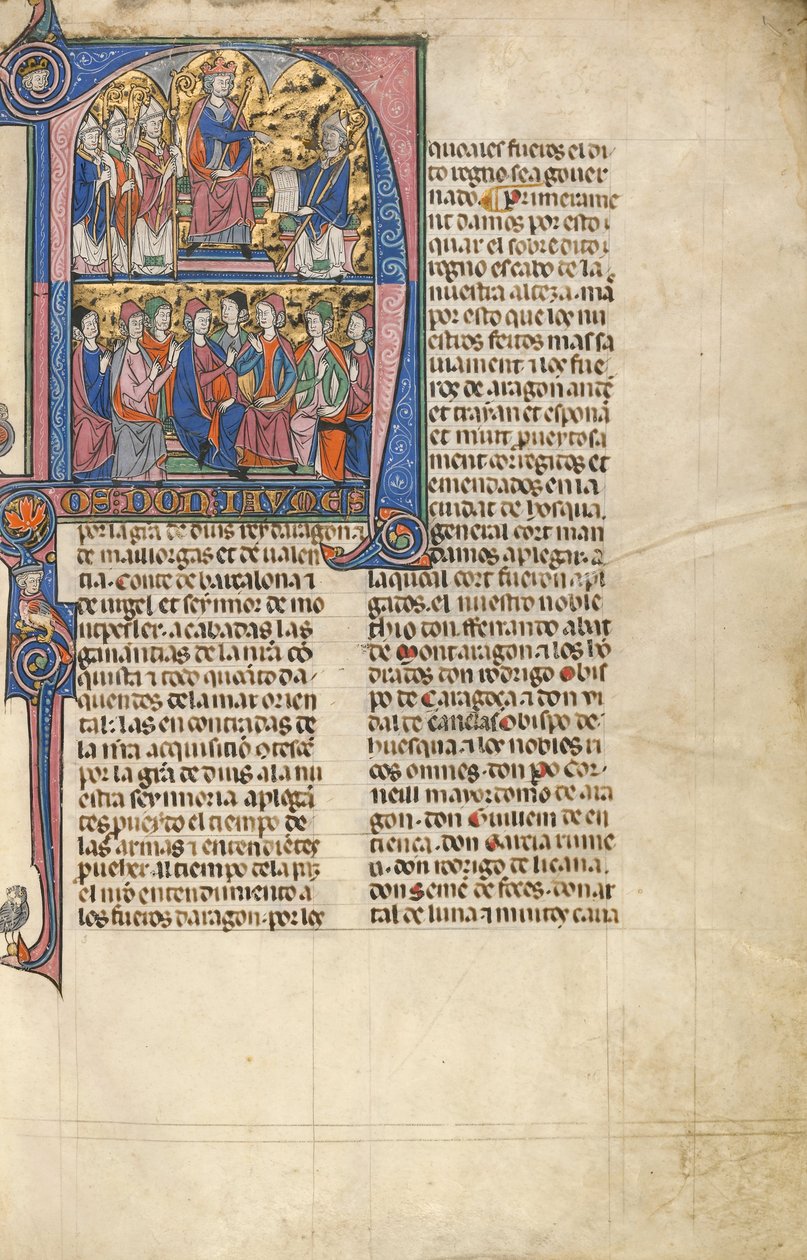 NOS DON IAVMES
por la gr̃a de dius rey daragon ⁊
de maillorgas et de ualen
tia. Conte de barçalona ⁊
de urgel et seynnor de mo
ntpesler. acabadas las
ganantias de la nr̃a cõ
quista ⁊ todo quãto da-
quendes de la mar orien
tal: las encontradas de
la nr̃a acquisitiõ
por la gr̃a de dius a la nu
estra seynnoria aplega
des pueyto el tiempo de
las armas ⁊ entendiẽtes
prueher. al tiempo de la paz
el nr̃o entendimiento a
los fueros daragon. por los
quoales fueros el di
to regno sea gouer
nado. Primerame
nt damos por esto
quar el sobredito
regno es cabo de la
nuestra alteza. mas
por esto que los nu
estros feitos passa
uament ⁊ los fue
ros de aragon ante
et trayan et esponan
et muit prueytosa
ment corregidos et
emendados en la
ciudat de hosqua.
general cort man
damos aplegar. a
la quoal cort fueron apl
gados. el nuestro noble
thio don fferrando abat
de Montaragon ⁊ los hõ
drados don rodrigo Obis
po de Caragoça ⁊ don vi
dal de canelas Obispo de
huesqua. ⁊ los nobles ri
cos omnes. don Po Cor-
neill mayordomo de ara
gon. don Guillem de en
tiença. don Garcia rume
u. don rodrigo de liçana.
don Semẽ de foces. don ar
tal de luna ⁊ muitos caua